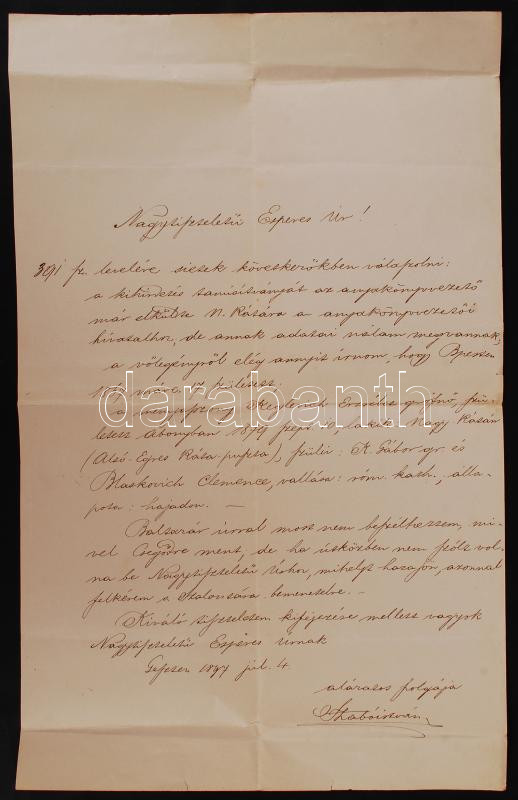 Nagytiszteletű Esperes Úr!
391 sz. levelére sietek következőkben válaszolni:
a kihirdetés tanúsítványát az anyakönyvvezető
már elküldte N. Rására a anyakönyvvezetői
hivatalhoz, de annak adatai nálam megvannak,
a vőlegényről elég annyit írnom, hogy Bpesten
született.
a menyasszony Keglevich Erzsébet grófnő, szü-
letett Abonyban 1879 10, lakik Nagy Rásán
(Alsó-Egres Rása puszta), szülei: K. Gábor gr. és
Blaskovich Clemence, vallása: róm. kath., álla-
pota: hajadon. —
Baltazár úrral most nem beszélhettem, mi-
vel Csegődre ment, de ha útközben nem szólt vol-
na be Nagytiszteletű Úrhoz, mihelyt hazajön, azonnal
felkérem a bemenetelre. —
Kiváló tiszteletem kifejezése mellett vagyok
Nagytiszteletű Esperes Úrnak
1897 júl. 4
alázatos szolgája
Szabó István
darabanth